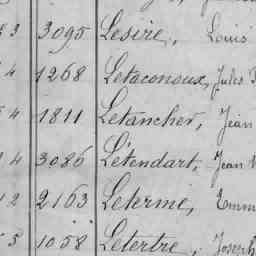 3 3095 Lesire, Louis
4 1268 Letaconoux, Jules
4 1811 Letancher, Jean
4 3086 Létendart, Jean
2 2163 Leterme,
5 1058 Letertre, Joseph